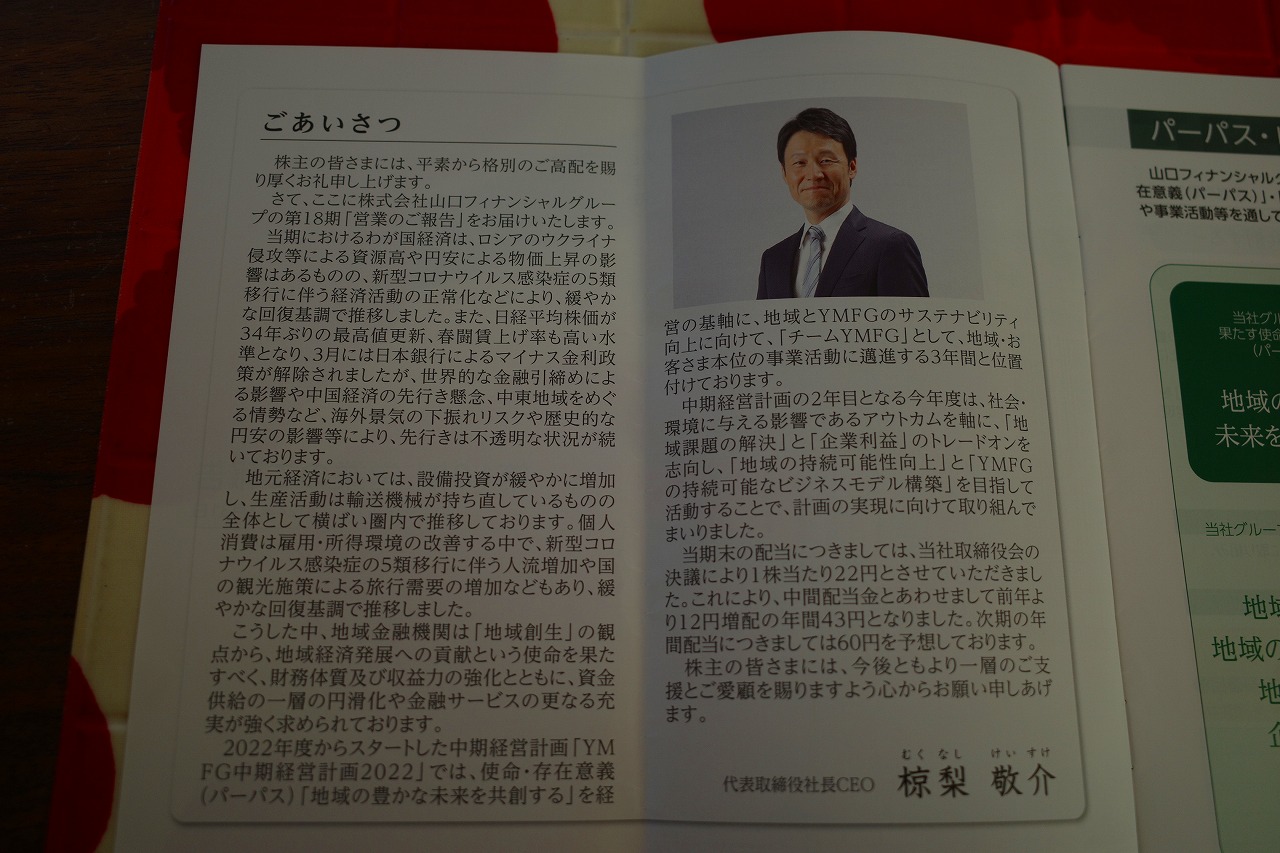 ごあいさつ
株主の皆さまには、平素から格別のご高配を賜
り厚くお礼申し上げます。
さて、ここに株式会社山口フィナンシャルグルー
プの第18期「営業のご報告」をお届けいたします。
当期におけるわが国経済は、ロシアのウクライナ
侵攻等による資源高や円安による物価上昇の影
響はあるものの、新型コロナウイルス感染症の5類
移行に伴う経済活動の正常化などにより、緩やか
な回復基調で推移しました。また、日経平均株価が
34年ぶりの最高値更新、春闘賃上げ率も高い水
準となり、3月には日本銀行によるマイナス金利政
策が解除されましたが、世界的な金融引締めによ
る影響や中国経済の先行き懸念、中東地域をめぐ
る情勢など、海外景気の下振れリスクや歴史的な
円安の影響等により、先行きは不透明な状況が続
いております。
地元経済においては、設備投資が緩やかに増加
し、生産活動は輸送機械が持ち直しているものの
全体として横ばい圏内で推移しております。個人
消費は雇用・所得環境の改善する中で、新型コロ
ナウイルス感染症の5類移行に伴う人流増加や国
の観光施策による旅行需要の増加などもあり、緩
やかな回復基調で推移しました。
こうした中、地域金融機関は「地域創生」の観
点から、地域経済発展への貢献という使命を果た
すべく、財務体質及び収益力の強化とともに、資金
供給の一層の円滑化や金融サービスの更なる充
実が強く求められております。
2022年度からスタートした中期経営計画「YM
FG中期経営計画2022」では、使命・存在意義
(パーパス)「地域の豊かな未来を共創する」を経
営の基軸に、地域とYMFGのサステナビリティ
向上に向けて、「チームYMFG」として、地域・お
客さま本位の事業活動に邁進する3年間と位置
付けております。
中期経営計画の2年目となる今年度は、社会・
環境に与える影響であるアウトカムを軸に、「地
域課題の解決」と「企業利益」のトレードオンを
志向し、「地域の持続可能性向上」と「YMFG
の持続可能なビジネスモデル構築」を目指して
活動することで、計画の実現に向けて取り組んで
まいりました。
当期末の配当につきましては、当社取締役会の
決議により1株当たり22円とさせていただきまし
た。これにより、中間配当金とあわせまして前年よ
り12円増配の年間43円となりました。次期の年
間配当につきましては60円を予想しております。
株主の皆さまには、今後ともより一層のご支
援とご愛顧を賜りますよう心からお願い申しあげ
ます。
むくなし けいすけ
代表取締役社長CEO 椋梨 敬介
パーパス・
山口フィナンシャルグ
在意義(パーパス)」・
や事業活動等を通して
当社グル
果たす使命
(パー
地域の
未来を
当社グルー
地域
地域の
地
企